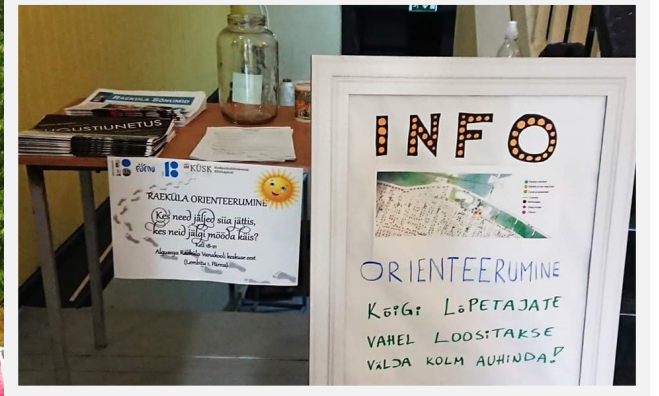 RAEKÜLA SÕNUMID
AUGUSTIUNETUS
PÄRNU
KÜSK
RAEKÜLA ORIENTEERUMINE
Kes need jäljed siia jättis,
kes neid jälgi mööda käis?
Kell 18-21
Algusega Raeküla Vanakooli keskuse eest
(Lembitu 1, Pärnu)
INFO
ORIENTEERUMINE
KõiGi LõPETAJATE
VAHEL LOOSITAKSE
VÄLJA KOLM AUHINDA!